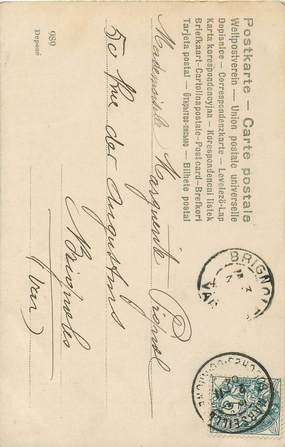 Postkarte — Carte postale
Weltpostverein — Union postale universelle
Dopisnice — Correspondenzkarte — Levelező-Lap
Karta korespondencyjna — Korespondenční lístek
Briefkaart — Cartolina postale — Postcard — Brefkort
Tarjeta postal — Открытое письмо — Bilhete postal
989
Deposé
Mademoiselle Marguerite
50 Rue des Augustins
Brignoles
(Var)
BRIGNOLES
VAR